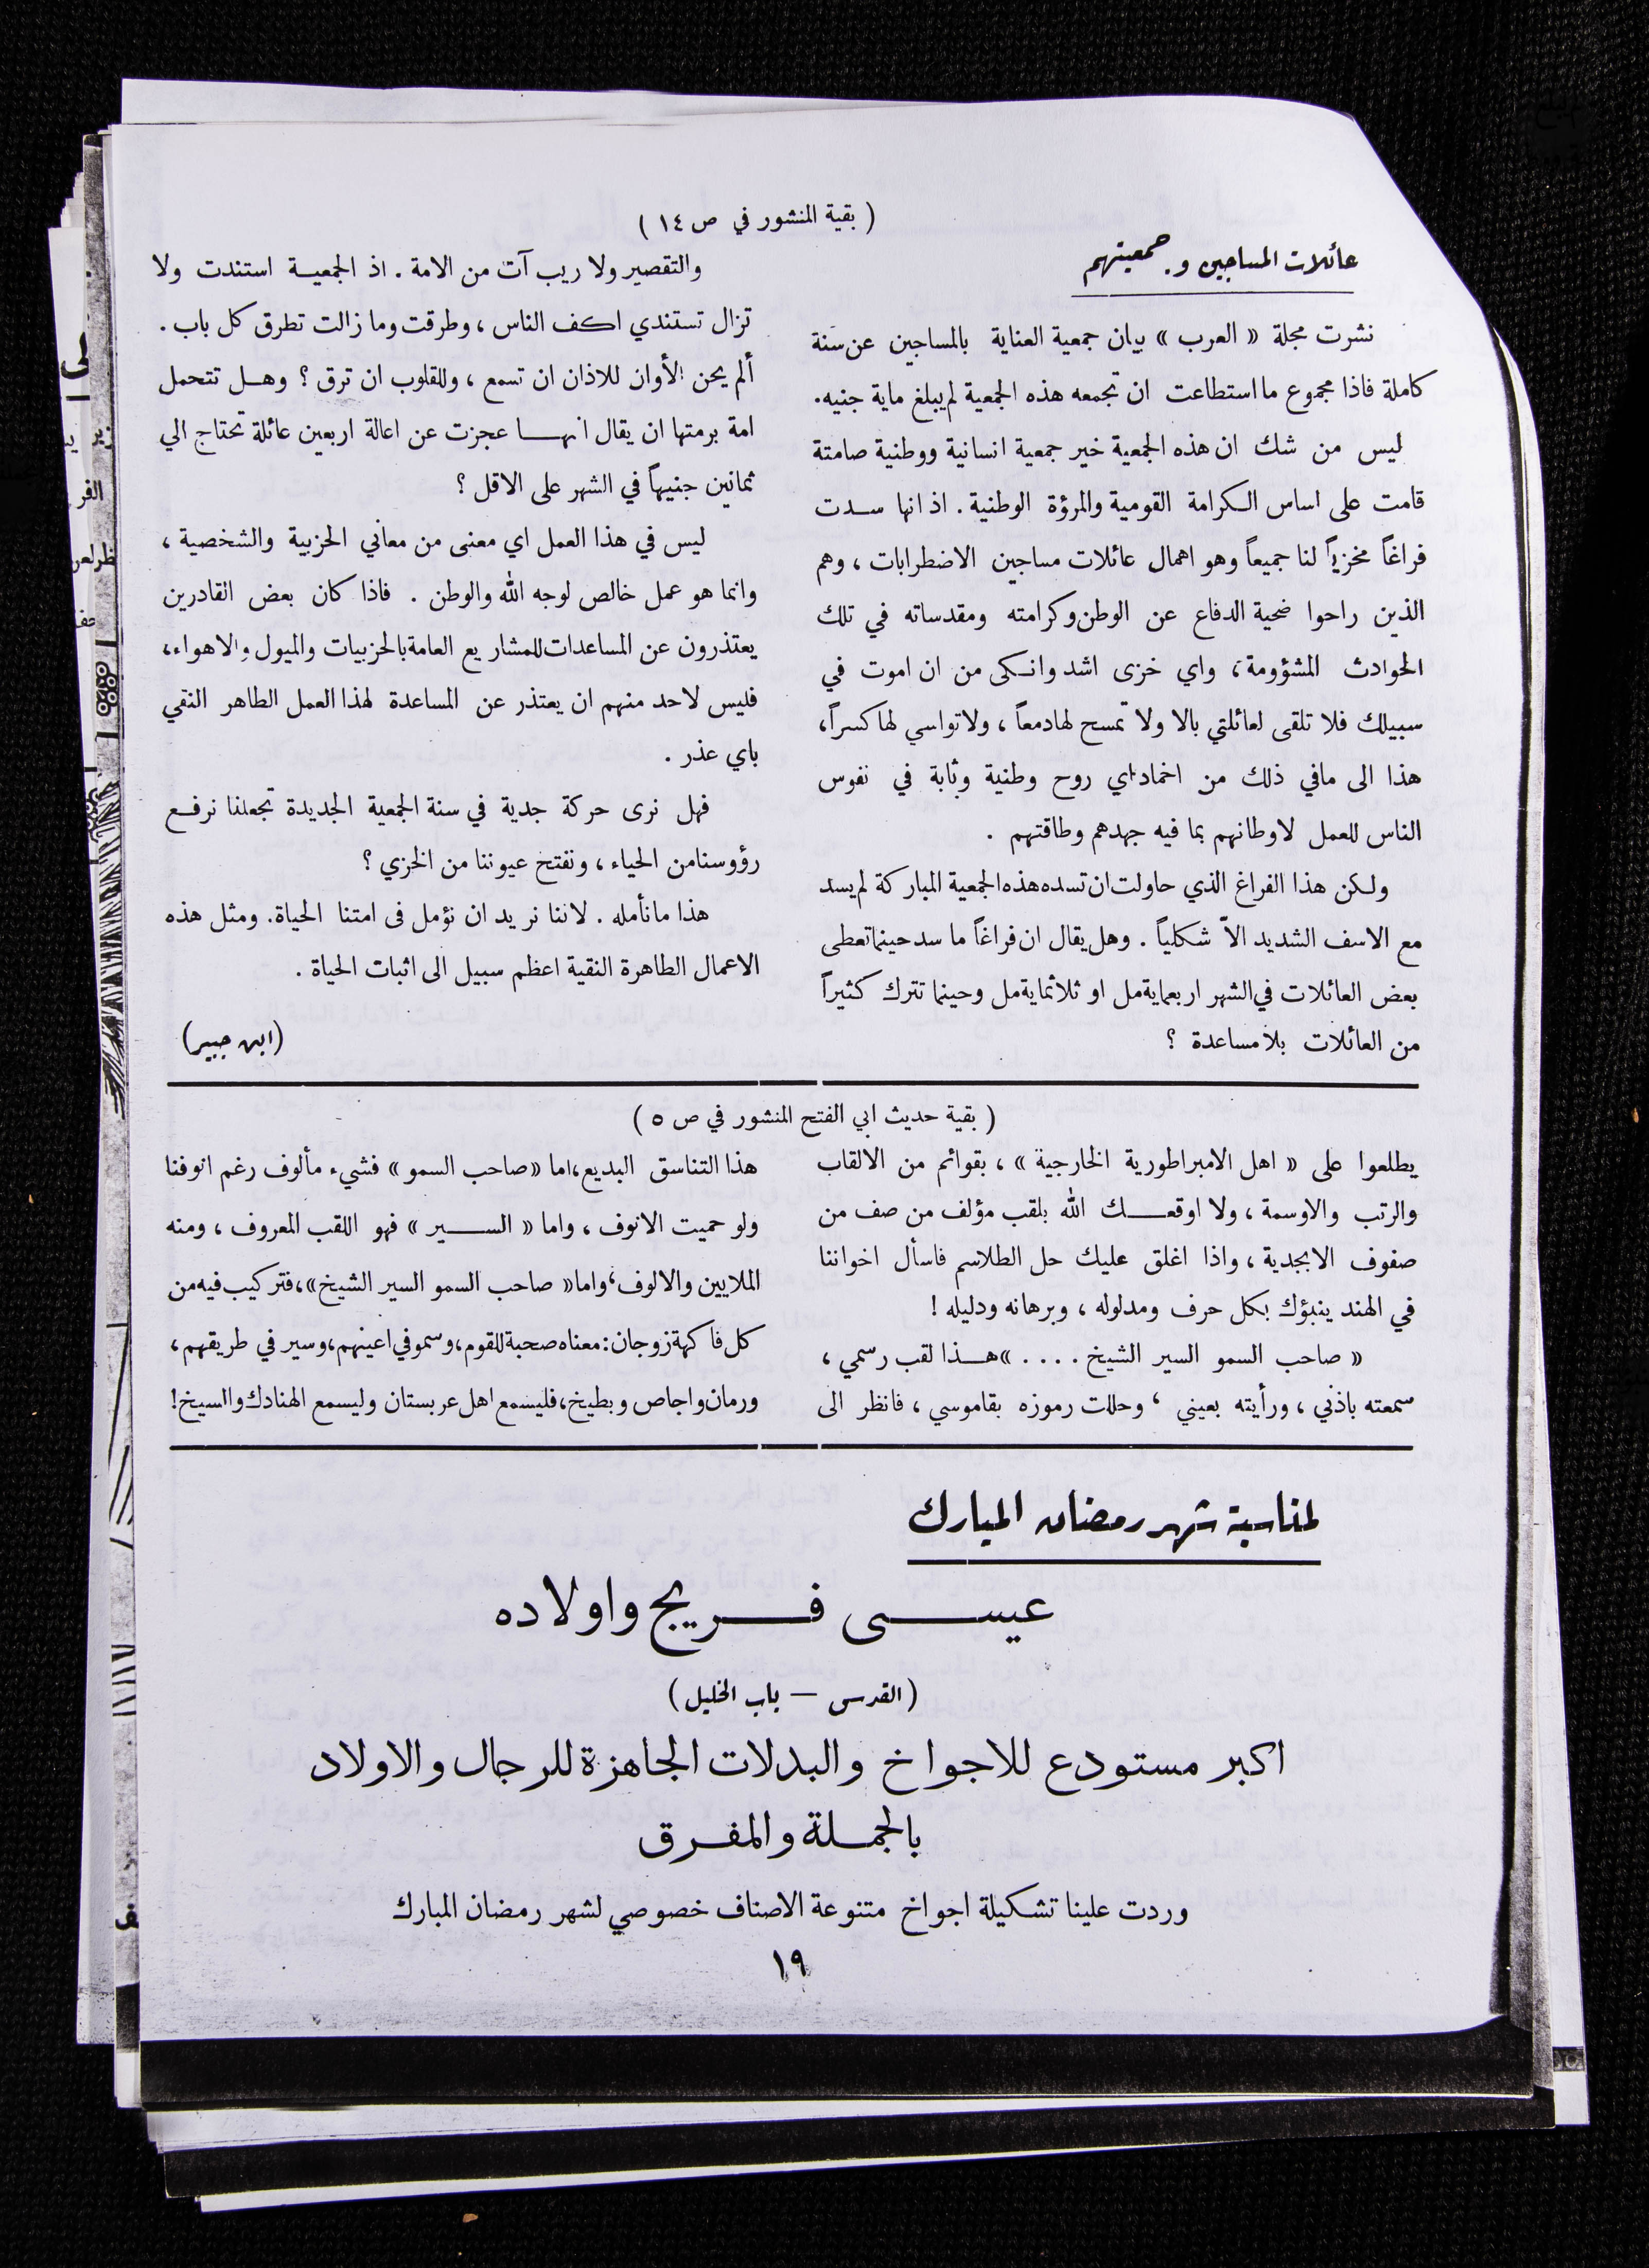 ( بقية المنشور في ص ١٤ )
عائلات المساجين و. جمعيتهم
نشرت مجلة « العرب » بيان جمعية العناية بالمساجين عن سنة
كاملة فاذا مجموع ما استطاعت ان تجمعه هذه الجمعية لم يبلغ ماية جنيه.
ليس من شك ان هذه الجمعية خير جمعية انسانية ووطنية صامتة
قامت على اساس الكرامة القومية والمرؤة الوطنية . اذ انها سدت
فراغاً مخزياً لنا جميعاً وهو اهمال عائلات مساجين الاضطرابات ، وهم
الذين راحوا ضحية الدفاع عن الوطن وكرامته ومقدساته في تلك
الحوادث المشؤومة ، واي خزى اشد وانكى من ان اموت في
سبيلك فلا تلقى لعائلتي بالا ولا تمسح لها دمعاً ، ولا تواسي لها كسراً،
هذا الى مافي ذلك من اخماد اي روح وطنية وثابة في نفوس
الناس للعمل لاوطانهم بما فيه جهدهم وطاقتهم .
ولكن هذا الفراغ الذي حاولت ان تسده هذه الجمعية المباركة لم يسد
مع الاسف الشديد الاّ شكلياً . وهل يقال ان فراغاً ما سد حينما تعطى
بعض العائلات في الشهر اربعماية مل او ثلاثماية مل وحينما تترك كثيراً
من العائلات بلا مساعدة ؟
والتقصير ولا ريب آت من الامة . اذ الجمعية استندت ولا
تزال تستندي اكف الناس ، وطرقت وما زالت تطرق كل باب .
ألم يحن الأوان للاذان ان تسمع ، وللقلوب ان ترق ؟ وهل تتحمل
امة برمتها ان يقال انها عجزت عن اعالة اربعين عائلة تحتاج الي
ثمانين جنيهاً في الشهر على الاقل ؟
ليس في هذا العمل اي معنى من معاني الحزبية والشخصية ،
وانما هو عمل خالص لوجه الله والوطن . فاذا كان بعض القادرين
يعتذرون عن المساعدات للمشاريع العامة بالحزبيات والميول والاهواء،
فليس لاحد منهم ان يعتذر عن المساعدة لهذا العمل الطاهر النقي
باي عذر .
فهل نرى حركة جدية في سنة الجمعية الجديدة تجعلنا نرفع
رؤوسنا من الحياء ، ونفتح عيوننا من الخزي ؟
هذا ما نأمله . لاننا نريد ان نؤمل فى امتنا الحياة. ومثل هذه
الاعمال الطاهرة النقية اعظم سبيل الى اثبات الحياة .
(ابن جبير)
( بقية حديث ابي الفتح المنشور في ص ٥ )
يطلعوا على « اهل الامبراطورية الخارجية » ، بقوائم من الالقاب
والرتب والاوسمة ، ولا اوقعك الله بلقب مؤلف من صف من
صفوف الابجدية ، واذا اغلق عليك حل الطلاسم فاسأل اخواننا
في الهند ينبؤك بكل حرف ومدلوله ، وبرهانه ودليله !
« صاحب السمو السير الشيخ . . . . » هذا لقب رسمي ،
سمعته باذني ، ورأيته بعيني ، وحللت رموزه بقاموسي ، فانظر الى
هذا التناسق البديع ، اما « صاحب السمو » فشيء مألوف رغم انوفنا
ولو حميت الانوف ، واما « السير » فهو اللقب المعروف ، ومنه
الملايين والالوف ، واما « صاحب السمو السير الشيخ » ، فتركيب فيه من
كل فاكهة زوجان : معناه صحبة للقوم ، وسمو في اعينهم ، وسير في طريقهم ،
ورمان واجاص وبطيخ ، فليسمع اهل عربستان وليسمع الهنادك والسيخ !
لمناسبة شهر رمضان المبارك
عيسى فريج واولاده
(القدس — باب الخليل)
اكبر مستودع للاجواخ والبدلات الجاهزة للرجال والاولاد
بالجملة والمفرق
وردت علينا تشكيلة اجواخ متنوعة الاصناف خصوصي لشهر رمضان المبارك
١٩